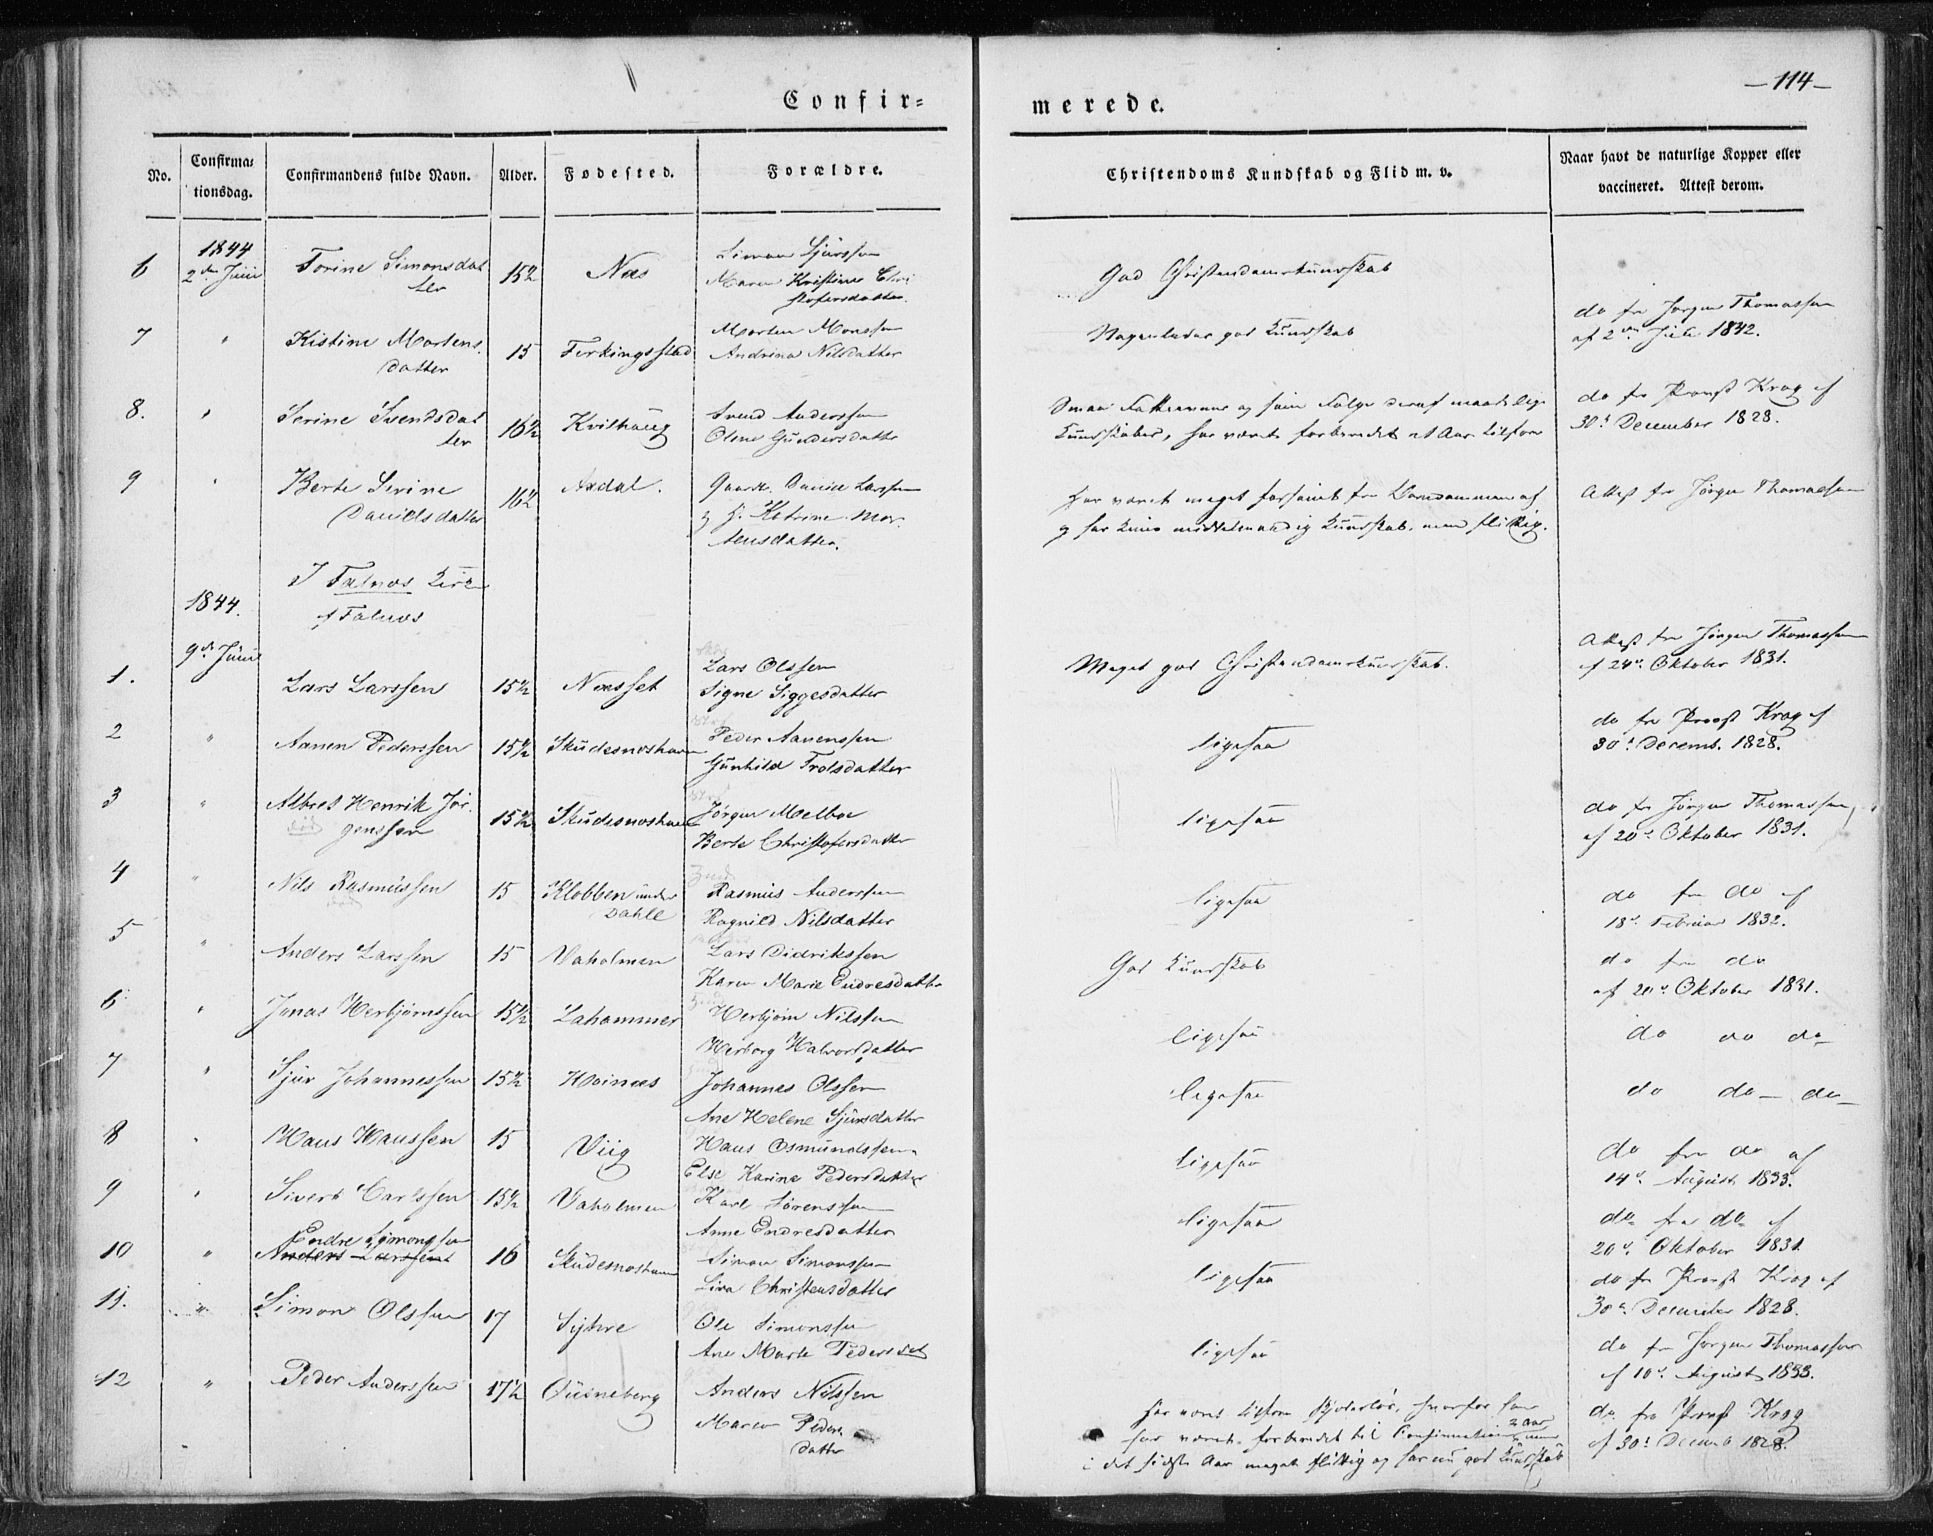 -114-
Confir=
merede.
No.
Confirma=
tionsdag.
Confirmandens fulde Navn.
Alder.
Fødested.
Forældre.
Christendoms Kundskab og Flid m. v.
Naar havt de naturlige Kopper eller
vaccineret. Attest derom.
6
1844
2den Juni
Torine Simonsdat
ter
15½
Næs
Simon Sjurssen
Maren Kristine Chri
stofersdatter
God Christendomskundskab
7
"
Kistine Mortens
datter
15
Ferkingstad
Morten Monssen
Andrina Nilsdatter
Nogenledes god Kundskab
do fra Jørgen Thomassen
af 2den Juli 1832.
8.
"
Serine Svendsdat
ter
16½
Kvilhaug
Svend Anderssen
Olene Gundersdatter
Smaa Fatteevner og som Følge deraf maadelige
Kundskaber, har været forberedet et Aar tilforn
do fra Provst Krag af
30d December 1828.
9
"
Berte Serine
Davidsdatter
16½
Axdal.
Gaardm. David Larssen
Katrine Mor
tensdatter.
har været meget forsømt fra Barndommen af
og har kuns middelmaadig Kundskab, men flittig.
Attest fra Jørgen Thomassen
I Falnæs Kirke
af Falnæs
1844.
9de Juni
1.
Lars Larssen
15½
Næsset
Lars Olssen
Signe Siggesdatter
Meget god Christendomskundskab.
Attest fra Jørgen Thomassen
af 24de Oktober 1831.
2
"
Aanen Pederssen
15½
Skudesnæshavn
Peder Aanenssen
Gunhild Trolsdatter
ligesaa
do fra Provst Krag af
30d Decemb. 1828.
3
"
Albret Henrik Jør
genssen
død
15½
Skudesnæshavn
Jørgen Melboe
Berte Christofersdatter
ligesaa
do fra Jørgen Thomassen
af 20de Oktober 1831.
4
"
Nils Rasmussen
død
15
Klobben under
Dahle
Rasmus Anderssen
Ragnild Nilsdatter
ligesaa
do fra do af
18de Februar 1832.
5
"
Anders Larssen
15
Vaholmen
Lars Didrikssen
Karen Marie Endresdatter
God Kundskab
do fra do
af 20de Oktober 1831.
6
"
Jonas Herbjørnssen
15½
Lahammer
Herbjørn Nilssen
Herborg Halvorsdatter
ligesaa
do do do
7
"
Sjur Johannessen
15½
Høinæs
Johannes Olssen
Ane Helene Sjursdatter
ligesaa
do do do
8
"
Hans Hanssen
15
Viig
Hans Osmundssen
Else Karine Pedersdatter
ligesaa
do fra do af
14de August 1833.
9
"
Sivert Carlssen
15½
Vaholmen
Karl Sørenssen
Anne Endresdatter
ligesaa
do fra do af
20de Oktober 1831
10
"
Endre Simonssen
Anders Larssen
16
Skudesnæshavn
Simon Simonssen
Lina Christensdatter
ligesaa
do fra Provst Krag af
30de December 1828.
11.
"
Simon Olssen
17
Syhre
Ole Simonssen
Ane Marte Pedersdat
ligesaa
do fra Jørgen Thomassen
af 10de August 1833.
12
"
Peder Anderssen
17½
Qusneberg
Anders Nilssen
Maren Peders
datter
har været tilforn skjødesløs, hvorfor han
har været forberedet til Confirmation 2 Aar, men
i det sidste Aar meget flittig og har nu god Kundskab
do fra Provst Krag
af 30d Decemb 1828.